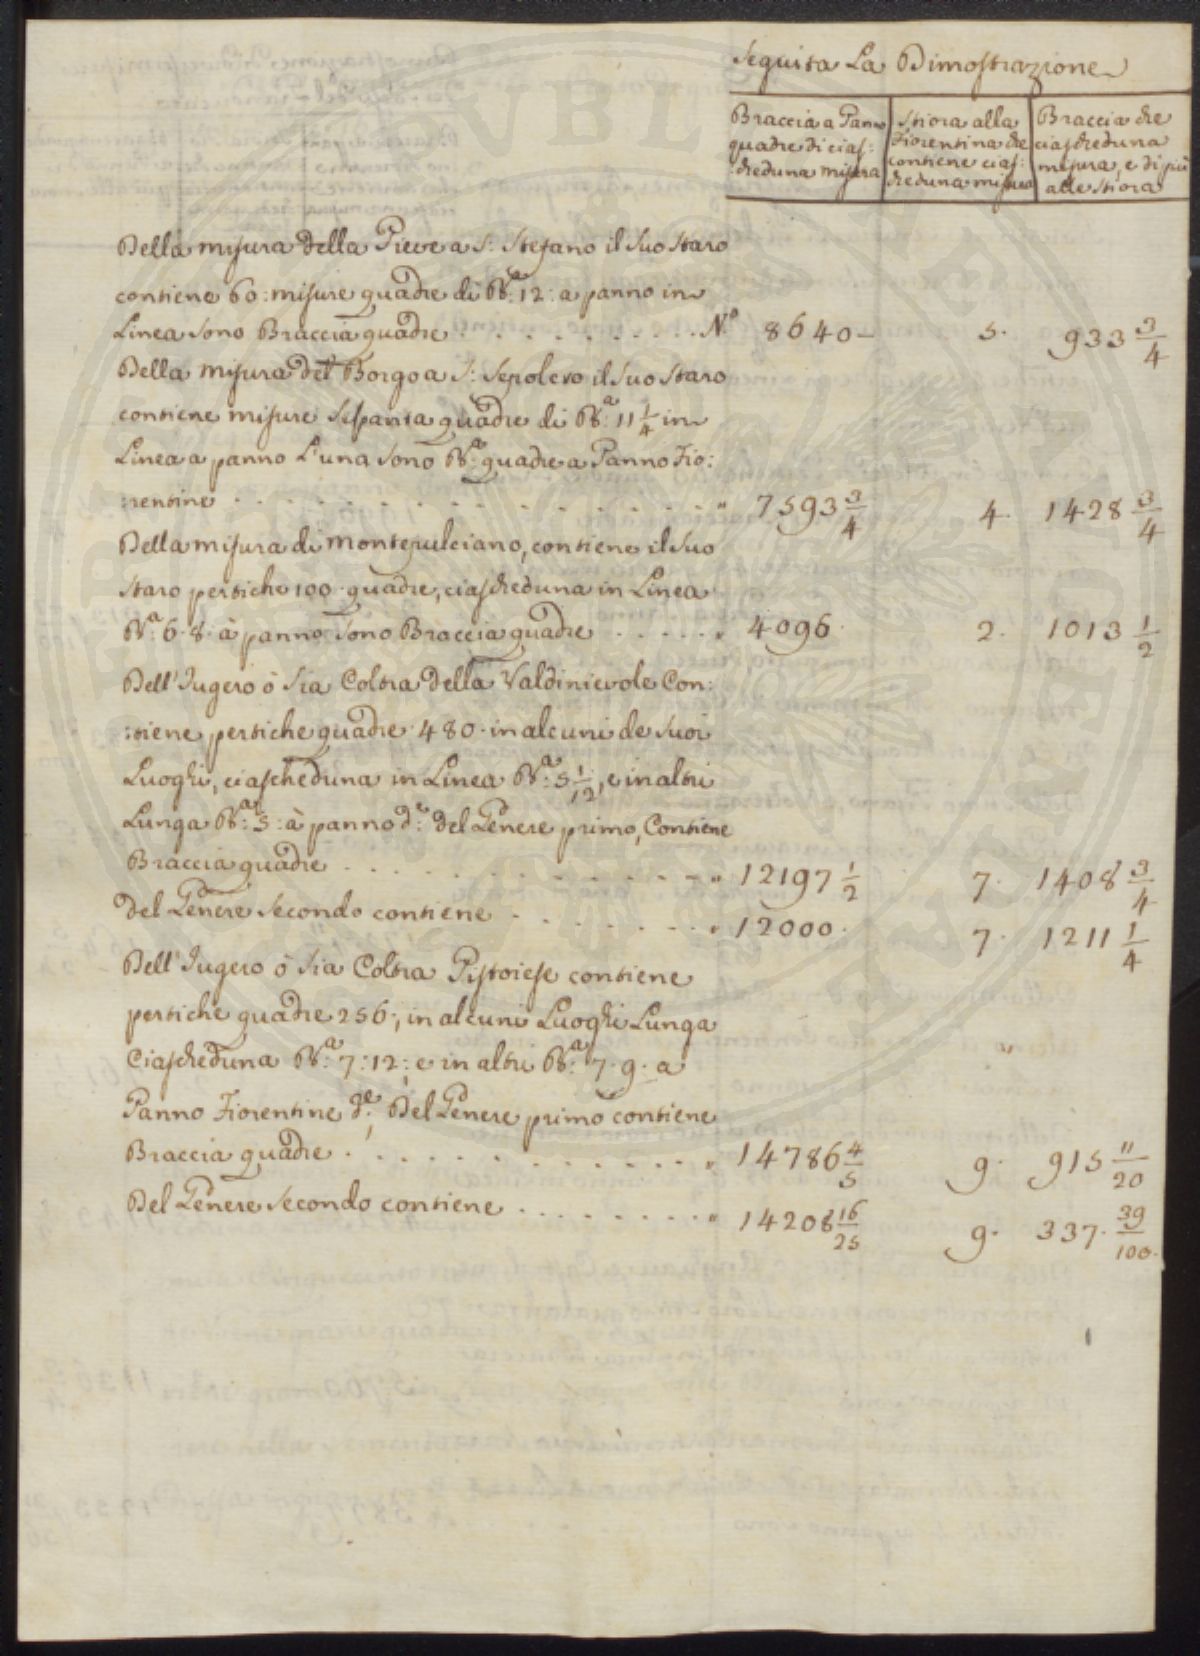 Seguita La Dimostrazione
Braccia a Panno quadre di ciaf: :cheduna misura
Stiora alla Fiorentina che contiene ciaf: cheduna misura
Braccia che ciascheduna misura, e di più alle Stiora
Della misura della Pieve a S: Stefano il suo staro
contiene 60: misure quadre di Bra: 12: a panno in
Linea sono Braccia quadre . . . . . . . . . No 8640 — 5. 933 3/4
Della misura del Borgo a S: Sepolcro il suo staro
contiene misure sessanta quadre di Bra: 11 1/4 in
Linea a panno L'una sono Bra: quadre a Panno Fio:
:rentine . . . . . . . . . . . . " 7593 3/4 4. 1428 3/4
Della misura di montepulciano, contiene il suo
staro pertiche 100. quadre, ciascheduna in Linea
Bra: 6. 8. à panno sono Braccia quadre . . . . . " 4096. 2. 1013 1/2
Dell'Iugero ò sia Coltra della Valdinievole Con:
:tiene pertiche quadre 480. in alcuni de suoi
Luoghi, ciascheduna in Linea Bra: 5 1/12, e in altri
Lunga Bra: 5: à panno de: del Genere primo, Contiene
Braccia quadre . . . . . . . . . . . " 12197 1/2 7. 1408 3/4
del Genere secondo contiene . . . . . . . " 12000. 7. 1211 1/4
Dell'Iugero ò sia Coltra Pistoiese contiene
pertiche quadre 256:, in alcuni Luoghi Lunga
Ciascheduna Bra: 7: 12:, e in altri Bra: 7. 9. a
Panno Fiorentine de:, Del Genere primo contiene
Braccia quadre . . . . . . . . . . . . " 14786 4/5 9. 915 11/20
Del Genere secondo contiene . . . . . . . . " 14208 16/25 9. 337. 39/100.